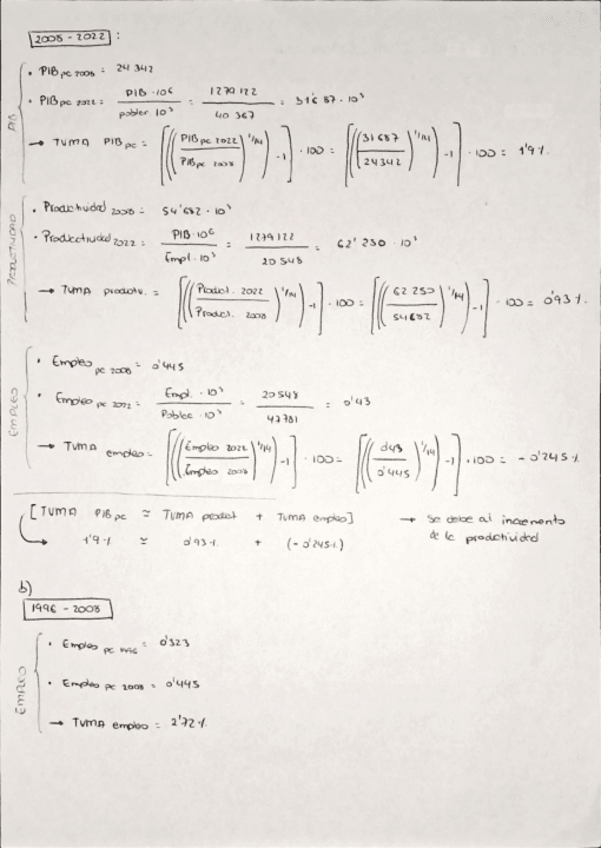 2008 - 2022 :
PIB
• PIB pc 2008 = 24 342
• PIB pc 2022 = PIB · 10⁶ / poblac 10³ = 1279 122 / 40 367 = 31'687 · 10³
→ TVMA PIB pc = [((PIB pc 2022 / PIB pc 2008)^1/14) - 1] · 100 = [((31 687 / 24342)^1/14) - 1] · 100 = 1'9 %.
PRODUCTIVIDAD
• Productividad 2008 = 54'682 · 10³
• Productividad 2022 = PIB · 10⁶ / Empl. 10³ = 1279122 / 20 548 = 62' 250 · 10³
→ TVMA productv. = [((Product. 2022 / Product. 2008)^1/14) - 1] · 100 = [((62 250 / 54682)^1/14) - 1] · 100 = 0'93 %.
EMPLEO
• Empleo pc 2008 = 0'445
• Empleo pc 2022 = Empl. · 10³ / Poblac · 10³ = 20548 / 47781 = 0'43
→ TVMA empleo = [((Empleo 2022 / Empleo 2008)^1/14) - 1] · 100 = [((0'43 / 0'445)^1/14) - 1] · 100 = - 0'245 %
[TVMA PIB pc ≃ TVMA product + TVMA empleo] → Se debe al incremento
1'9 % ≃ 0'93 %. + (- 0'245 %.) de la productividad
b)
1996 - 2008
EMPLEO
• Empleo pc 1996 = 0'323
• Empleo pc 2008 = 0'445
→ TVMA empleo = 2'72 %.